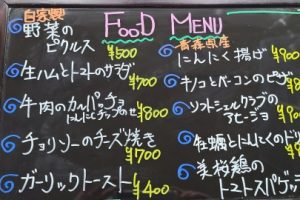 FOOD MENU
自家製
野菜の
ピクルス
¥500
生ハムとトマトのサラダ
¥700
牛肉のカルパッチョ
にんにくチップのせ
¥800
チョリソーのチーズ焼き
¥700
ガーリックトースト
¥400
青森県産
にんにく揚げ
¥900
キノコとベーコンのピザ
¥8
ソフトシェルクラブの
アヒージョ
¥9
牡蠣とにんにくのド
¥9
美桜鶏の
トマトスパゲッテ